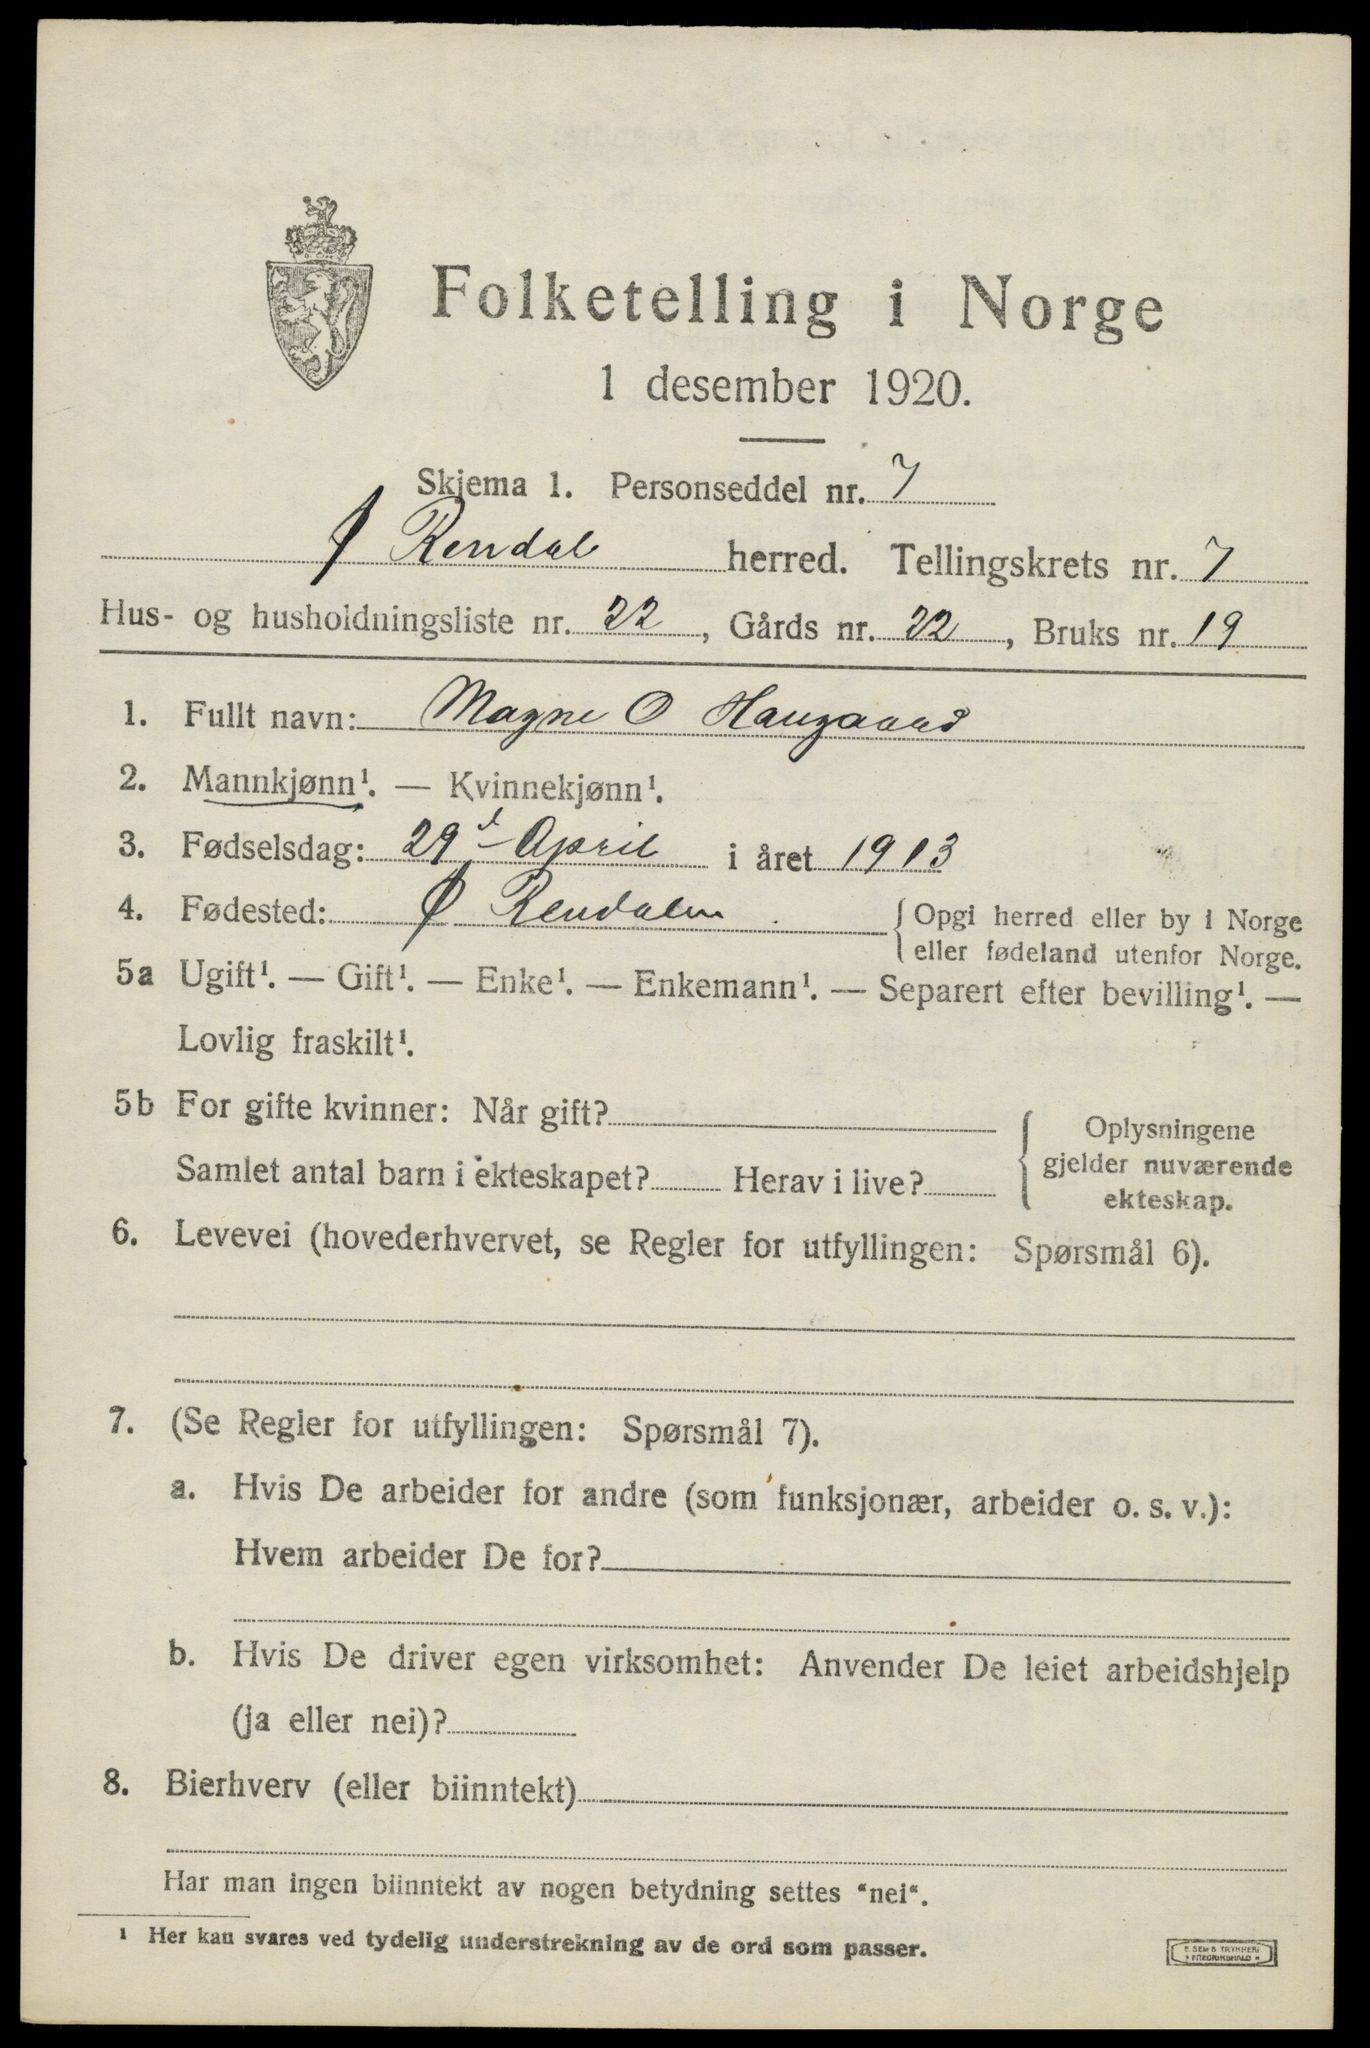 Folketelling i Norge
1 desember 1920.
Skjema 1. Personseddel nr. 7
Ø Rendal herred. Tellingskrets nr. 7
Hus- og husholdningsliste nr. 22, Gårds nr. 22, Bruks nr. 19
1. Fullt navn: Magne O Haugaard
2. Mannkjønn¹. — Kvinnekjønn¹.
3. Fødselsdag: 29d April i året 1913
4. Fødested: Ø Rendalen { Opgi herred eller by i Norge
eller fødeland utenfor Norge.
5a Ugift¹. — Gift¹. — Enke¹. — Enkemann¹. — Separert efter bevilling¹. —
Lovlig fraskilt¹.
5b For gifte kvinner: Når gift?
Samlet antal barn i ekteskapet? Herav i live?
{ Oplysningene
gjelder nuværende
ekteskap.
6. Levevei (hovederhvervet, se Regler for utfyllingen: Spørsmål 6).
7. (Se Regler for utfyllingen: Spørsmål 7).
a. Hvis De arbeider for andre (som funksjonær, arbeider o. s. v.):
Hvem arbeider De for?
b. Hvis De driver egen virksomhet: Anvender De leiet arbeidshjelp
(ja eller nei)?
8. Bierhverv (eller biinntekt)
Har man ingen biinntekt av nogen betydning settes “nei“.
¹ Her kan svares ved tydelig understrekning av de ord som passer.
E. SEM'S TRYKKERI
* FREDRIKSHALD *